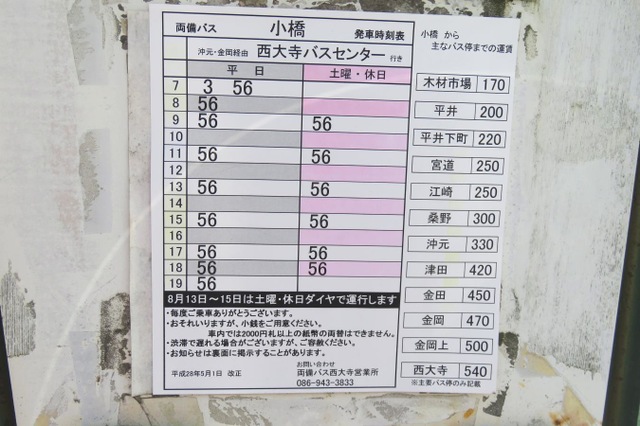 両備バス 小橋 発車時刻表
沖元・金岡経由 西大寺バスセンター 行き
平日 土曜・休日
7 3 56
8 56
9 56 56
10
11 56 56
12
13 56 56
14
15 56 56
16
17 56 56
18 56 56
19 56
8月13日～15日は土曜・休日ダイヤで運行します
・毎度ご乗車ありがとうございます。
・おそれいりますが、小銭をご用意ください。
車内では2000円札以上の紙幣の両替はできません。
・渋滞で遅れる場合がございますが、ご容赦ください。
・お知らせは裏面に掲示することがあります。
お問い合わせ
平成28年5月1日 改正 両備バス西大寺営業所
086-943-3833
小橋 から
主なバス停までの運賃
木材市場 170
平井 200
平井下町 220
宮道 250
江崎 250
桑野 300
沖元 330
津田 420
金田 450
金岡 470
金岡上 500
西大寺 540
※主要バス停のみ記載